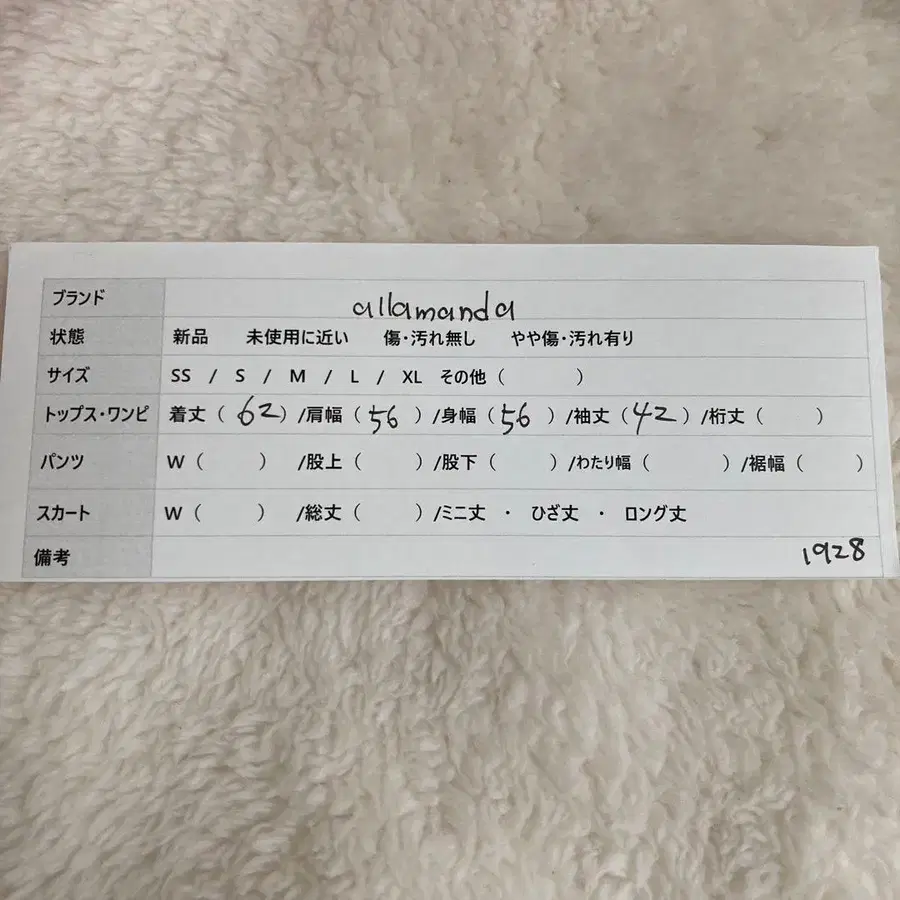 ブランド allamanda
状態 新品 未使用に近い 傷・汚れ無し やや傷・汚れ有り
サイズ SS / S / M / L / XL その他 ( )
トップス・ワンピ 着丈 ( 62 ) /肩幅 ( 56 ) /身幅 ( 56 ) /袖丈 ( 42 ) /裄丈 ( )
パンツ W ( ) /股上 ( ) /股下 ( ) /わたり幅 ( ) /裾幅 ( )
スカート W ( ) /総丈 ( ) /ミニ丈 ・ ひざ丈 ・ ロング丈
備考 1928